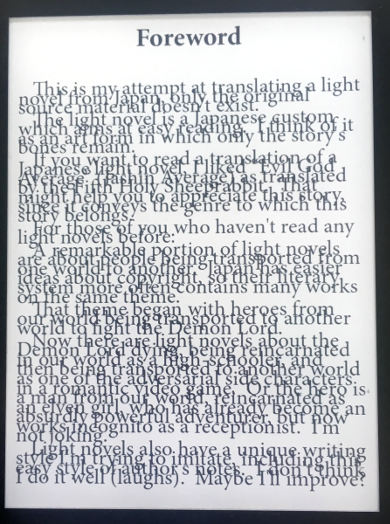 Foreword
This is my attempt at translating a light
novel from Japan, only the original
source material doesn't exist.
The light novel is a Japanese custom
which aims at easy reading. I think of it
as an art form in which only the story's
bones remain.
If you want to read a translation of a
Japanese light novel, "Evil God
Average" as translated
by the Fifth Holy Sheeprabbit. That
might help you to appreciate this story,
since it conveys the genre to which this
story belongs.
For those of you who haven't read any
light novels before:
A remarkable portion of light novels
are about people being transported from
one world to another. Japan has easier
ideas about copyright, so their literary
system more often contains many works
on the same theme.
That theme began with heroes from
our world being transported to another
world to fight the Demon Lord.
Now there are light novels about the
Demon Lord dying, being reincarnated
in our world as a high-schooler, and
then being transported to another world
as one of the adversarial side characters
in a romantic video game. Or the hero is
a man from our world, reincarnated as
an elven girl, who has already become an
absurdly powerful adventurer, but now
works incognito as a receptionist. I'm
not joking.
Light novels also have a unique writing
style I'm trying to imitate, including the
easy style of author's notes. I don't think
I do it well (laughs). Maybe I'll improve?